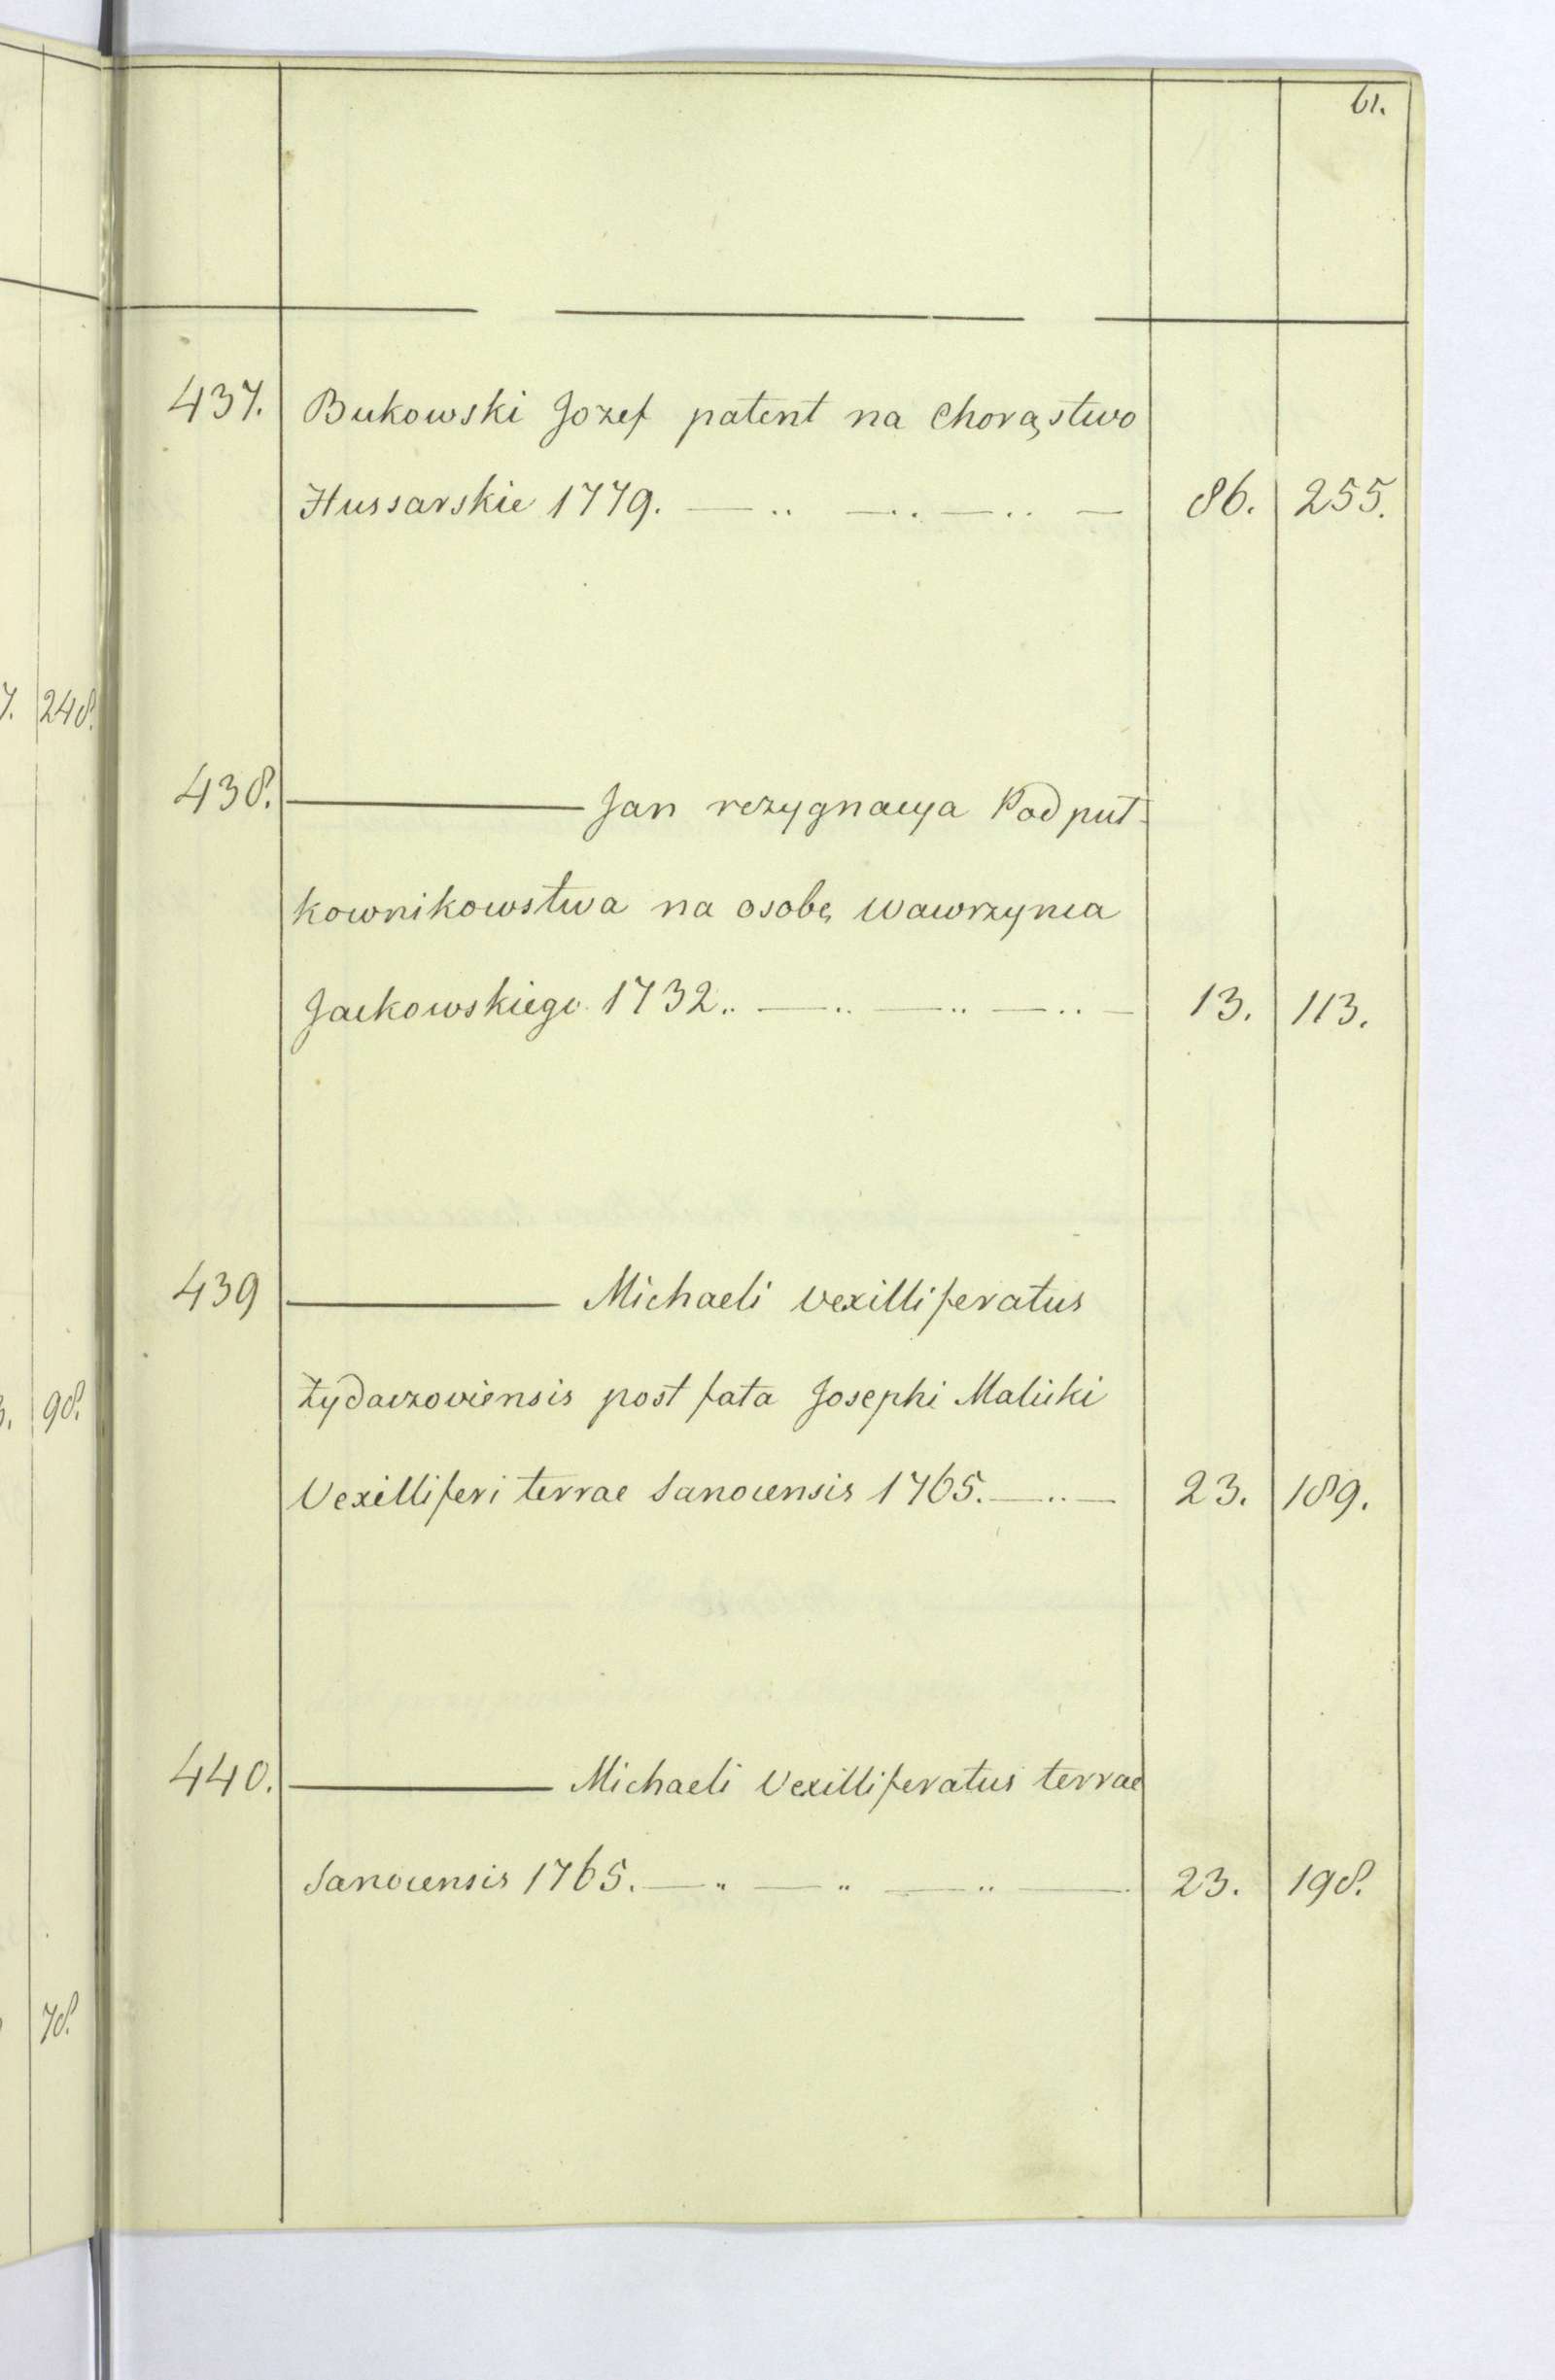 61.
437. Bukowski Jozef patent na Chorąstwo
Hussarskie 1779. — .. — .. — .. — 86. 255.
7. 248.
438. ——— Jan rezygnacya Podpuł-
kownikowstwa na osobę Wawrzynca
Jackowskiego 1732.. — .. — .. — .. — 13. 113.
439 ——— Michaeli Vexilliferatus
98.
Żydaczoviensis post fata Josephi Malicki
Vexilliferi terrae Sanocensis 1765. — .. — 23. 189.
440. ——— Michaeli Vexilliferatus terrae
Sanocensis 1765. — .. — .. — .. — 23. 198.
78.